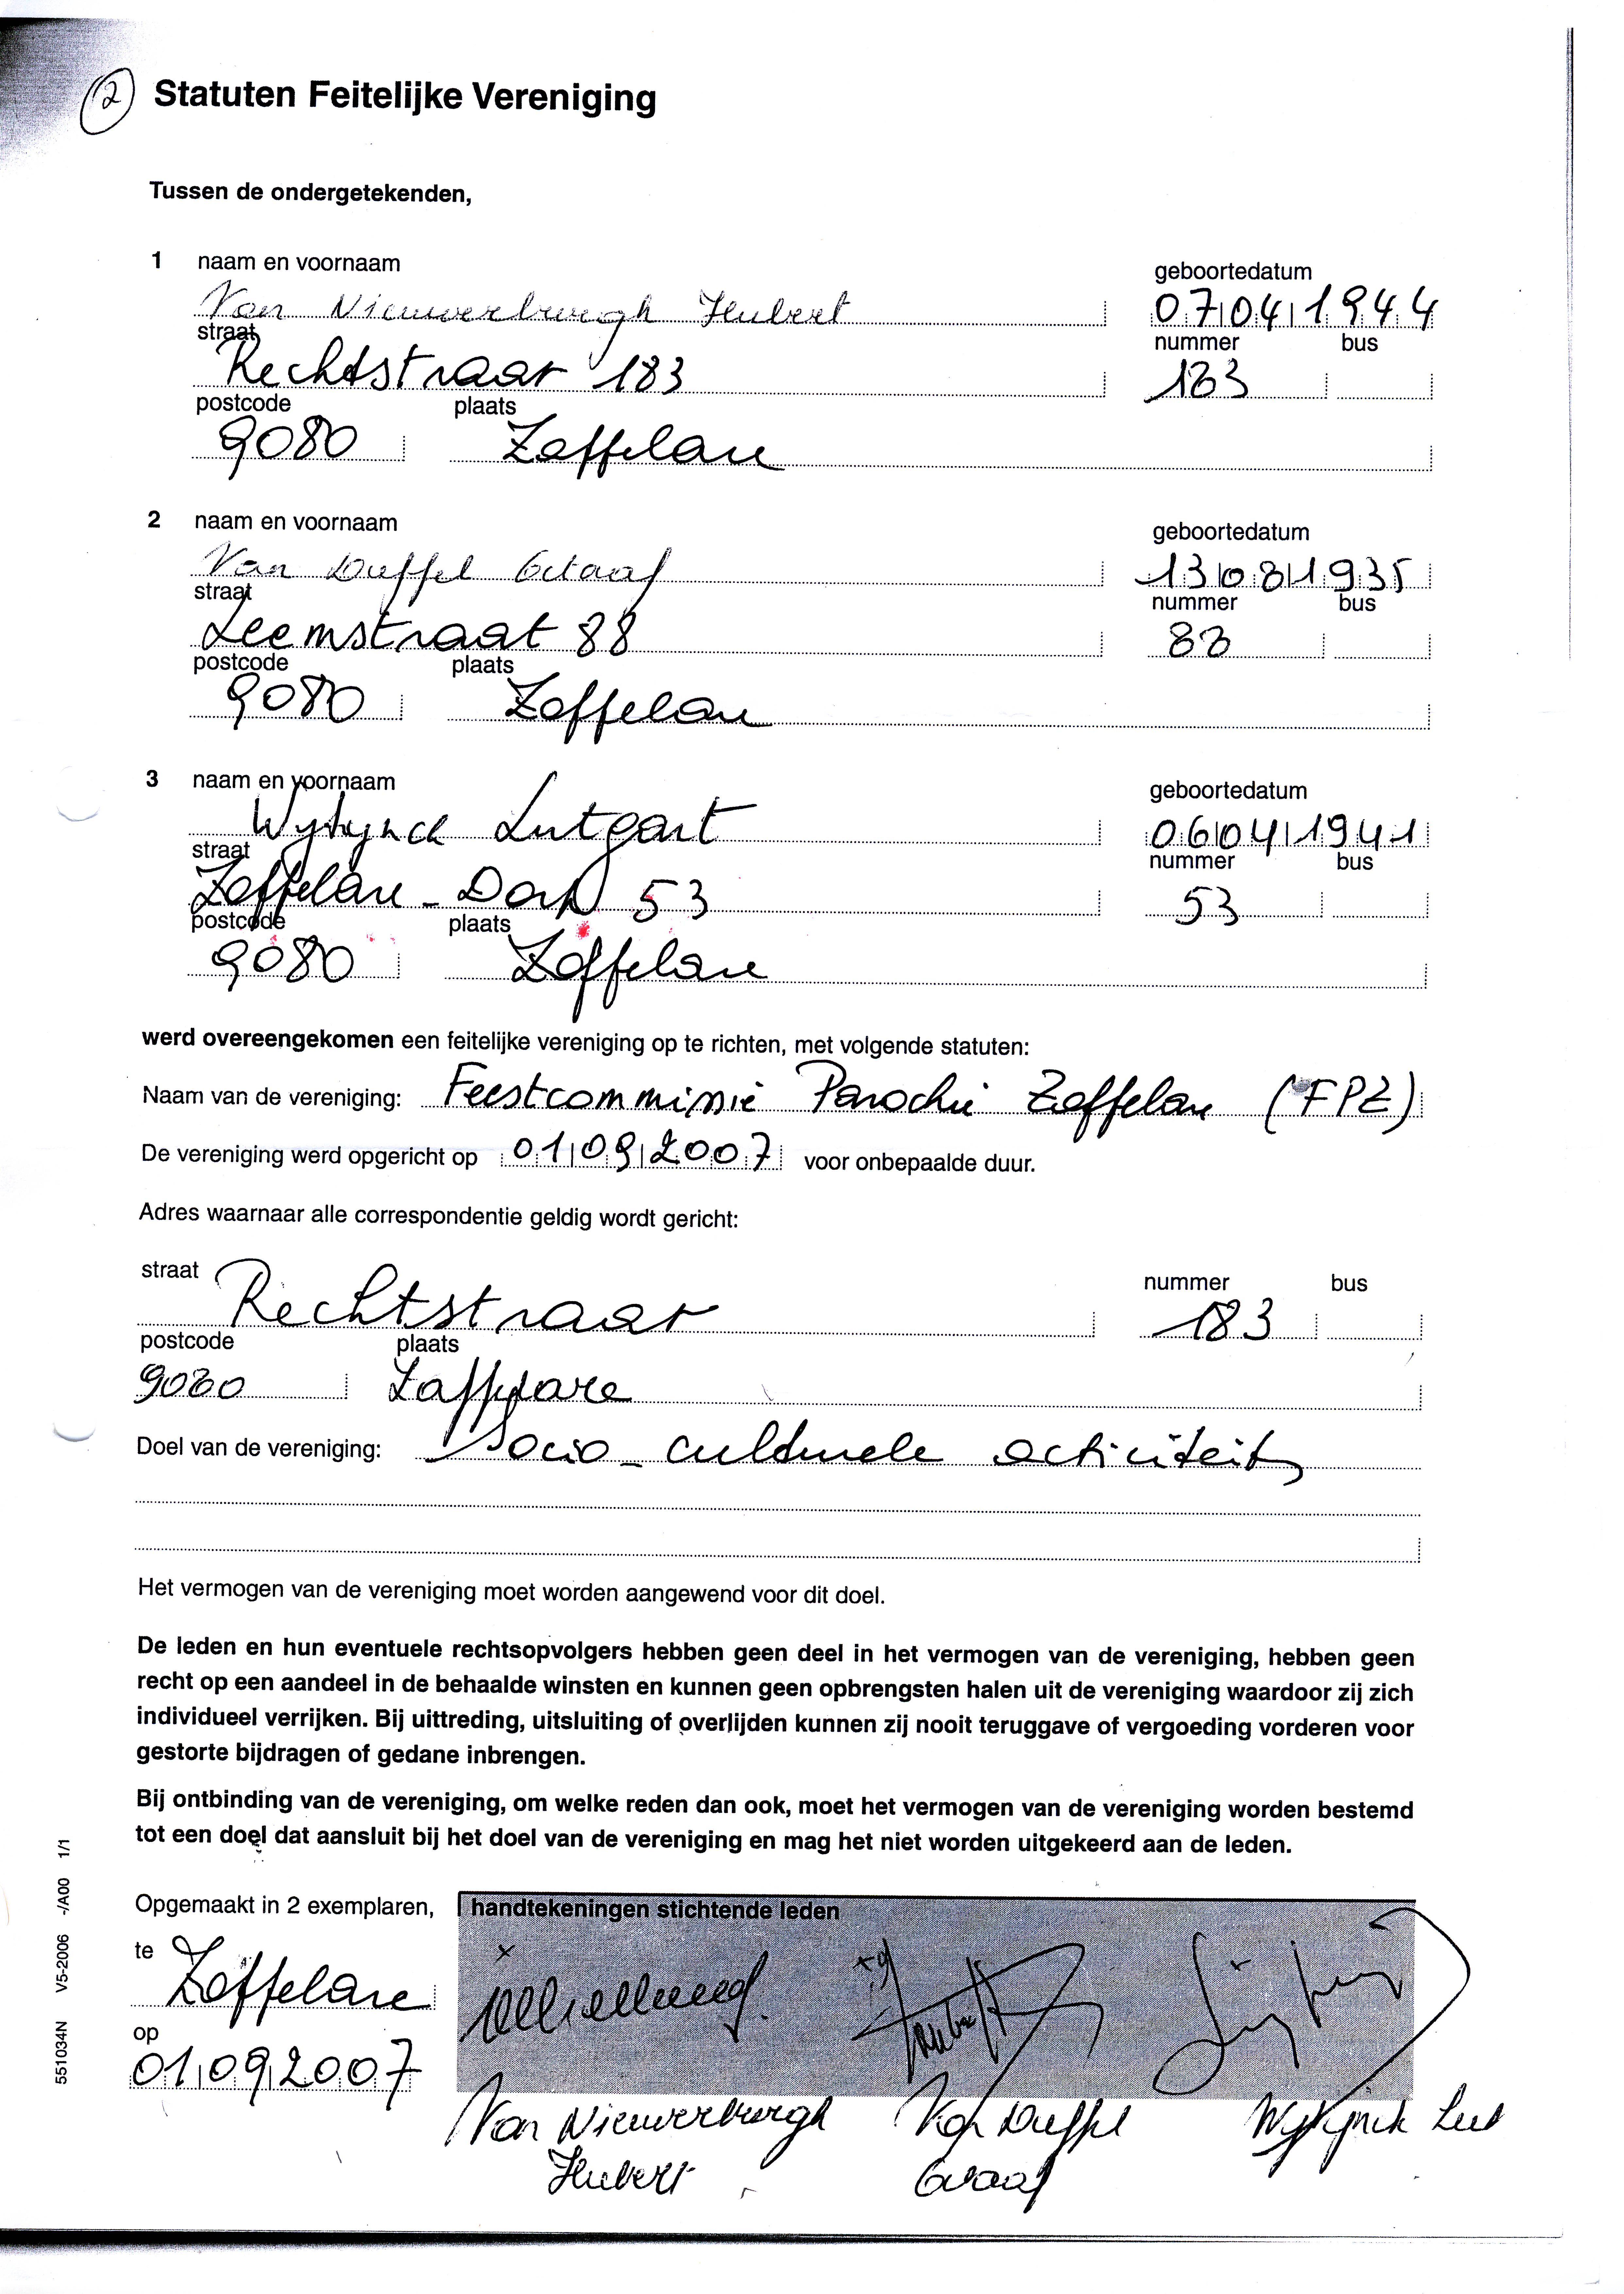 2 Statuten Feitelijke Vereniging
Tussen de ondergetekenden,
1 naam en voornaam geboortedatum
Van Nieuwerburgh Hubert 07|04|1944
straat nummer bus
Rechtstraat 183 183
postcode plaats
9080 Zaffelare
2 naam en voornaam geboortedatum
Van Duffel Gustaaf 13|08|1935
straat nummer bus
Leemstraat 88 88
postcode plaats
9080 Zaffelare
3 naam en voornaam geboortedatum
Lutgart 06|04|1941
straat nummer bus
Zaffelare - Dorp 53 53
postcode plaats
9080 Zaffelare
werd overeengekomen een feitelijke vereniging op te richten, met volgende statuten:
Naam van de vereniging: Feestcommissie Parochie Zaffelare (FPZ)
De vereniging werd opgericht op 01|09|2007 voor onbepaalde duur.
Adres waarnaar alle correspondentie geldig wordt gericht:
straat nummer bus
Rechtstraat 183
postcode plaats
9080 Zaffelare
Doel van de vereniging: Socio - culturele activiteit
Het vermogen van de vereniging moet worden aangewend voor dit doel.
De leden en hun eventuele rechtsopvolgers hebben geen deel in het vermogen van de vereniging, hebben geen
recht op een aandeel in de behaalde winsten en kunnen geen opbrengsten halen uit de vereniging waardoor zij zich
individueel verrijken. Bij uittreding, uitsluiting of overlijden kunnen zij nooit teruggave of vergoeding vorderen voor
gestorte bijdragen of gedane inbrengen.
Bij ontbinding van de vereniging, om welke reden dan ook, moet het vermogen van de vereniging worden bestemd
tot een doel dat aansluit bij het doel van de vereniging en mag het niet worden uitgekeerd aan de leden.
Opgemaakt in 2 exemplaren, handtekeningen stichtende leden
te Zaffelare
op
01|09|2007
Van Nieuwerburgh Van Duffel
Hubert
551034N V5-2006 -/A00 1/1